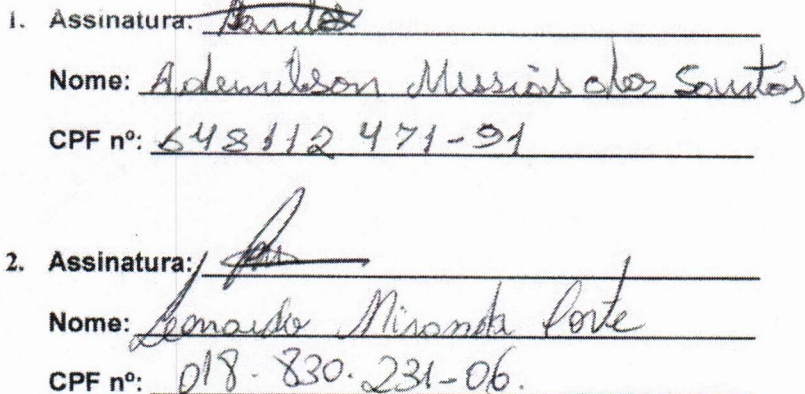 1. Assinatura: Santos
Nome: Ademilson Messias dos Santos
CPF nº: 648112 471-91
2. Assinatura:
Nome: Leonardo Miranda Porte
CPF nº: 018.830.231-06.